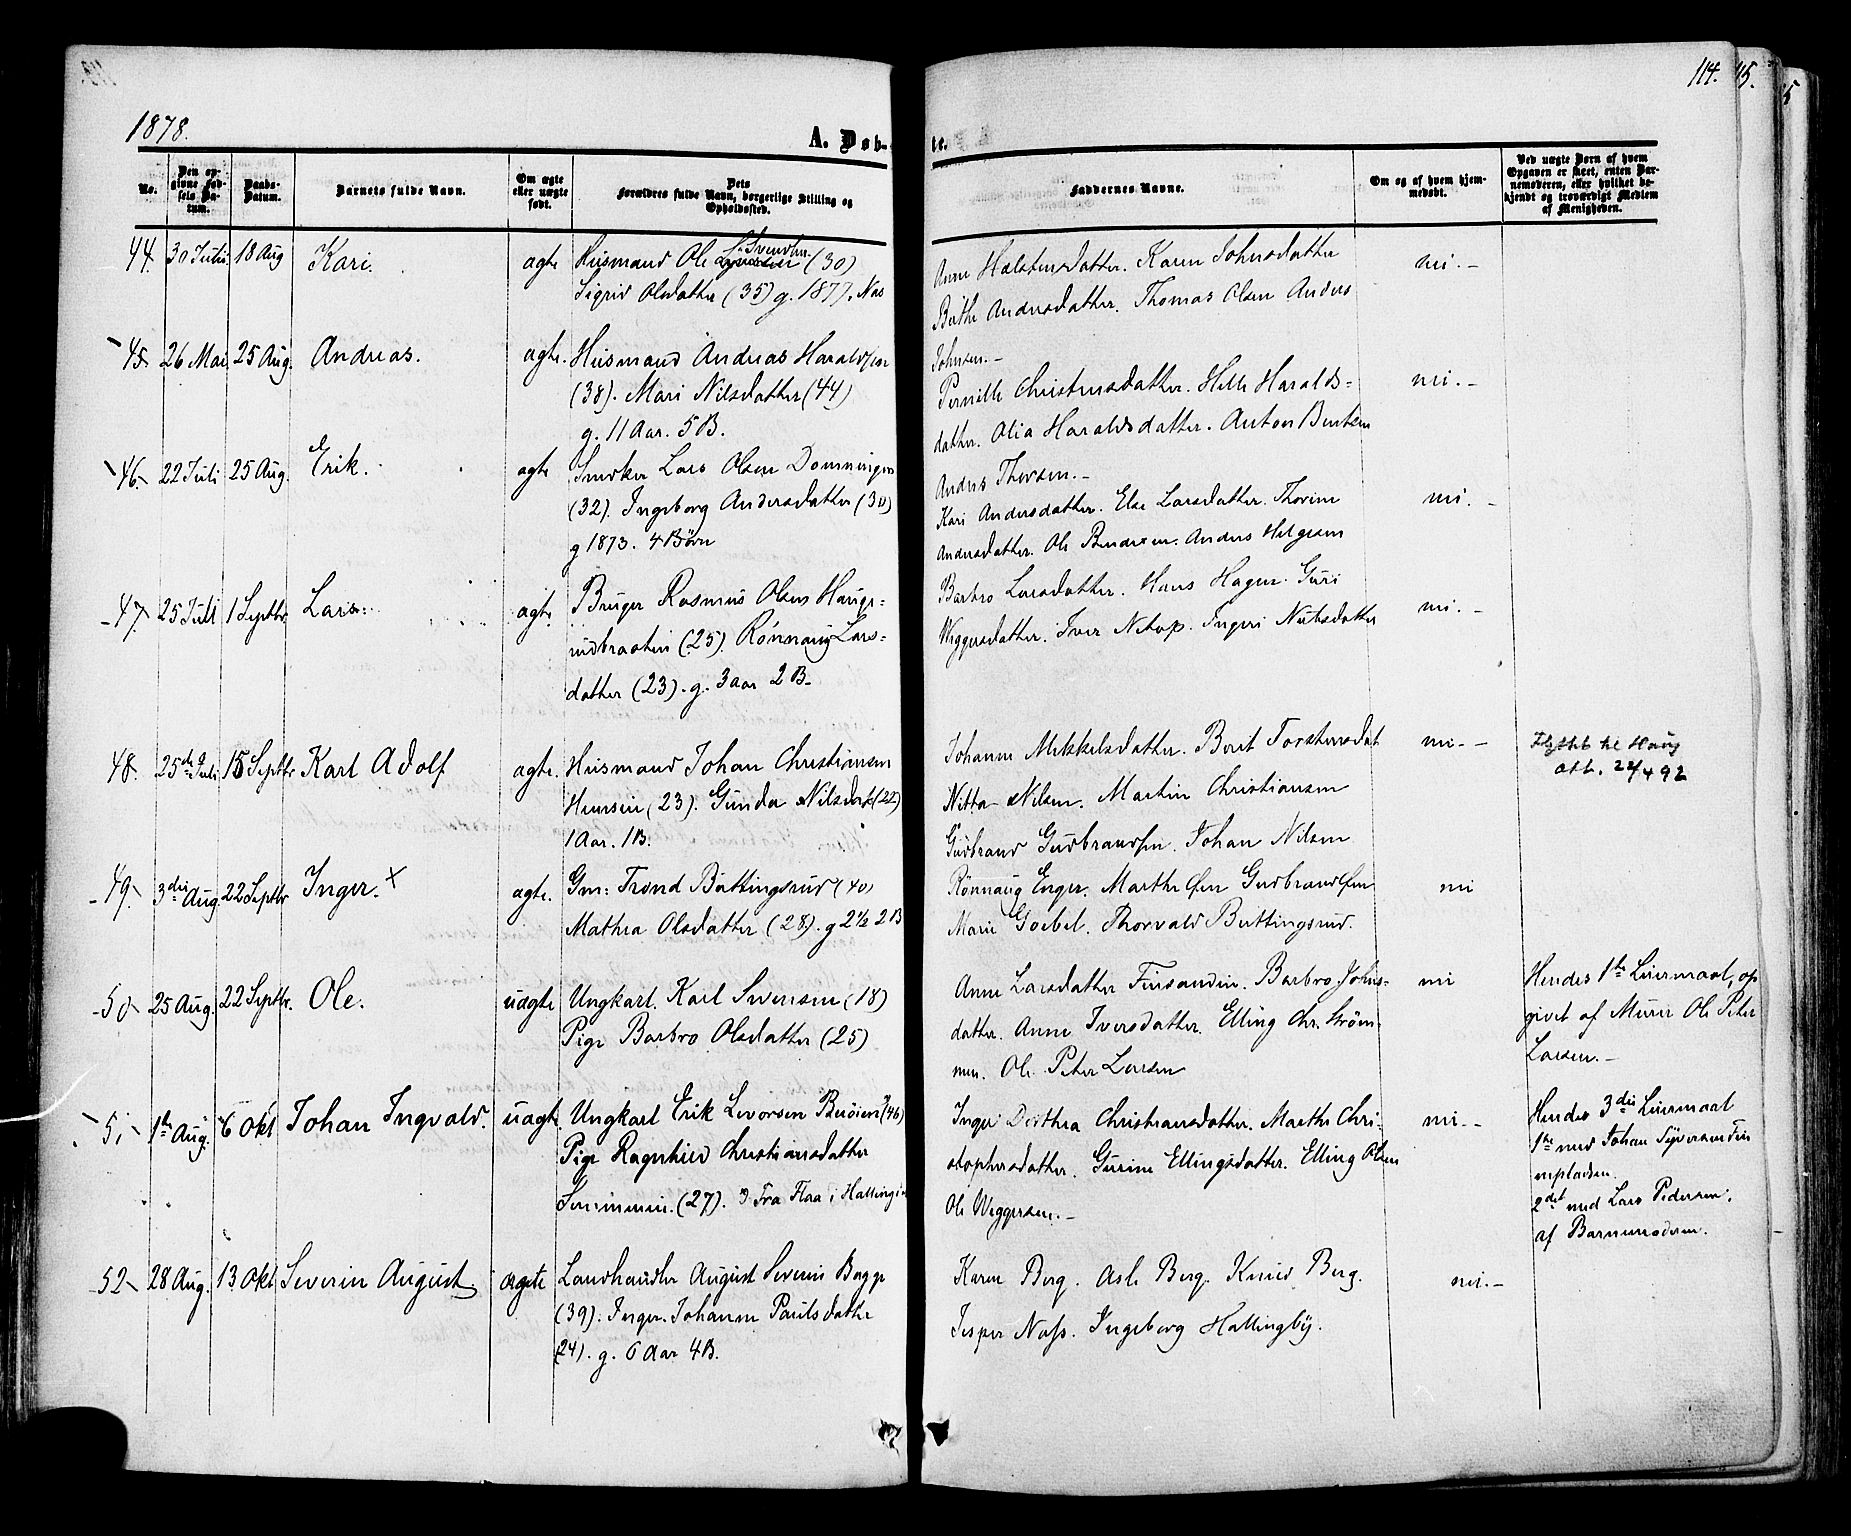 114. 115.
1878.
A. Døb-
te.
No.
Den op-
givne Fød-
sels Da-
tum.
Daabs-
Datum.
Barnets fulde Navn.
Om ægte
eller uægte
født.
Dets
Forældres fulde Navn, borgerlige Stilling og
Opholdssted.
Faddernes Navne.
Om og af hvem hjem-
medøbt.
Ved uægte Børn af hvem
Opgaven er skeet, enten Bar-
nemoderen, eller hvilket be-
kjendt og troværdigt Medlem
af Menigheden.
44. 30 Juli 18 Aug Kari. ægte Husmand Ole Svendsen (30)
Sigrid Olsdatter (35) g. 1877. Næs
Anne Halstensdatter. Karen Johnsdatter
Berthe Andersdatter. Thomas Olsen Anders
Johnsen.-
mi.-
45 26 Mai 25 Aug. Andreas. ægte. Husmand Andreas Haraldsen
(38). Mari Nilsdatter (44)
g. 11 Aar. 5 B.
Pernille Christensdatter. Helle Haralds-
datter. Olia Haraldsdatter. Anton Bentsen
Anders Thorsen.-
mi.-
46. 22 Juli 25 Aug. Erik. ægte Snedker Lars Olsen Domningen
(32). Ingeborg Andersdatter (30)
g 1873. 4 Børn
Kari Andersdatter. Else Larsdatter. Thorine
Andersdatter. Ole Bendixen. Anders Helgesen
mi.-
47. 25 Juli 1 Septbr. Lars. ægte. Bruger Rasmus Olsen Haugs-
rudbraaten (25). Rønnaug Lars-
datter (23). g. 3 aar 2 B-
Barbro Larsdatter. Hans Hagen. Guri
Wiggersdatter. Iver Ingeri Nubsdatter
mi.-
48. 25de Juli 15 Septbr Karl Adolf ægte. Husmand Johan Christiansen
Hensen (23). Gunda Nilsdatt (22)
1 Aar. 1 B.
Johanne Mikkelsdatter. Berit Torstensdat
Nitta Nilsen. Martin Christiansen
Gudbrand Gudbrandsen. Johan Nilsen
mi.-
til Haug
att. 22/4 92
49. 3die Aug 22 Septbr Inger. x ægte. Gm: Trond Buttingsrud (40)
Mathea Olsdatter (28). g 2½ 2 B
Rønnaug Enger. Marthe Gudbrandsen
Marie Goebel. Thorvald Buttingsrud.
mi
50 25 Aug. 22 Septbr. Ole. uægte Ungkarl. Karl Svensen (18)
Pige Barbro Olsdatter (25)
Anne Larsdatter Finsanden. Barbro Johns-
datter. Anne Iversdatter. Elling Chr. Strøm-
men. Ole Peter Larsen
mi
Hendes 1te Leiermaal, op
givet af Murer Ole Peter
Larsen.-
51 1te Aug. 6 Okt Johan Ingvald. uægte. Ungkarl Erik Levorsen (46)
Pige Ragnhild Christiansdatter
(27). Fra Flaa i Hallingd
Inger Dorthea Christiansdatter. Marthe Chri-
stophersdatter. Gurine Ellingsdatter. Elling Olsen
Ole Wiggersen.-
mi.-
Hendes 3die Leiermaal
1te med Johan Syversen Fin
enpladsen.
2det med Lars Pedersen.
af Barnemoderen.
52 28 Aug. 13 Okt Severin August ægte Landhandler August Severin Bagge
(39). Inger Johanne Paulsdatter
(24). g. 6 Aar 4 B.
Karen Berg. Asle Berg. Knud Berg.
Jesper Næss. Ingeborg Hallingby.
mi.-